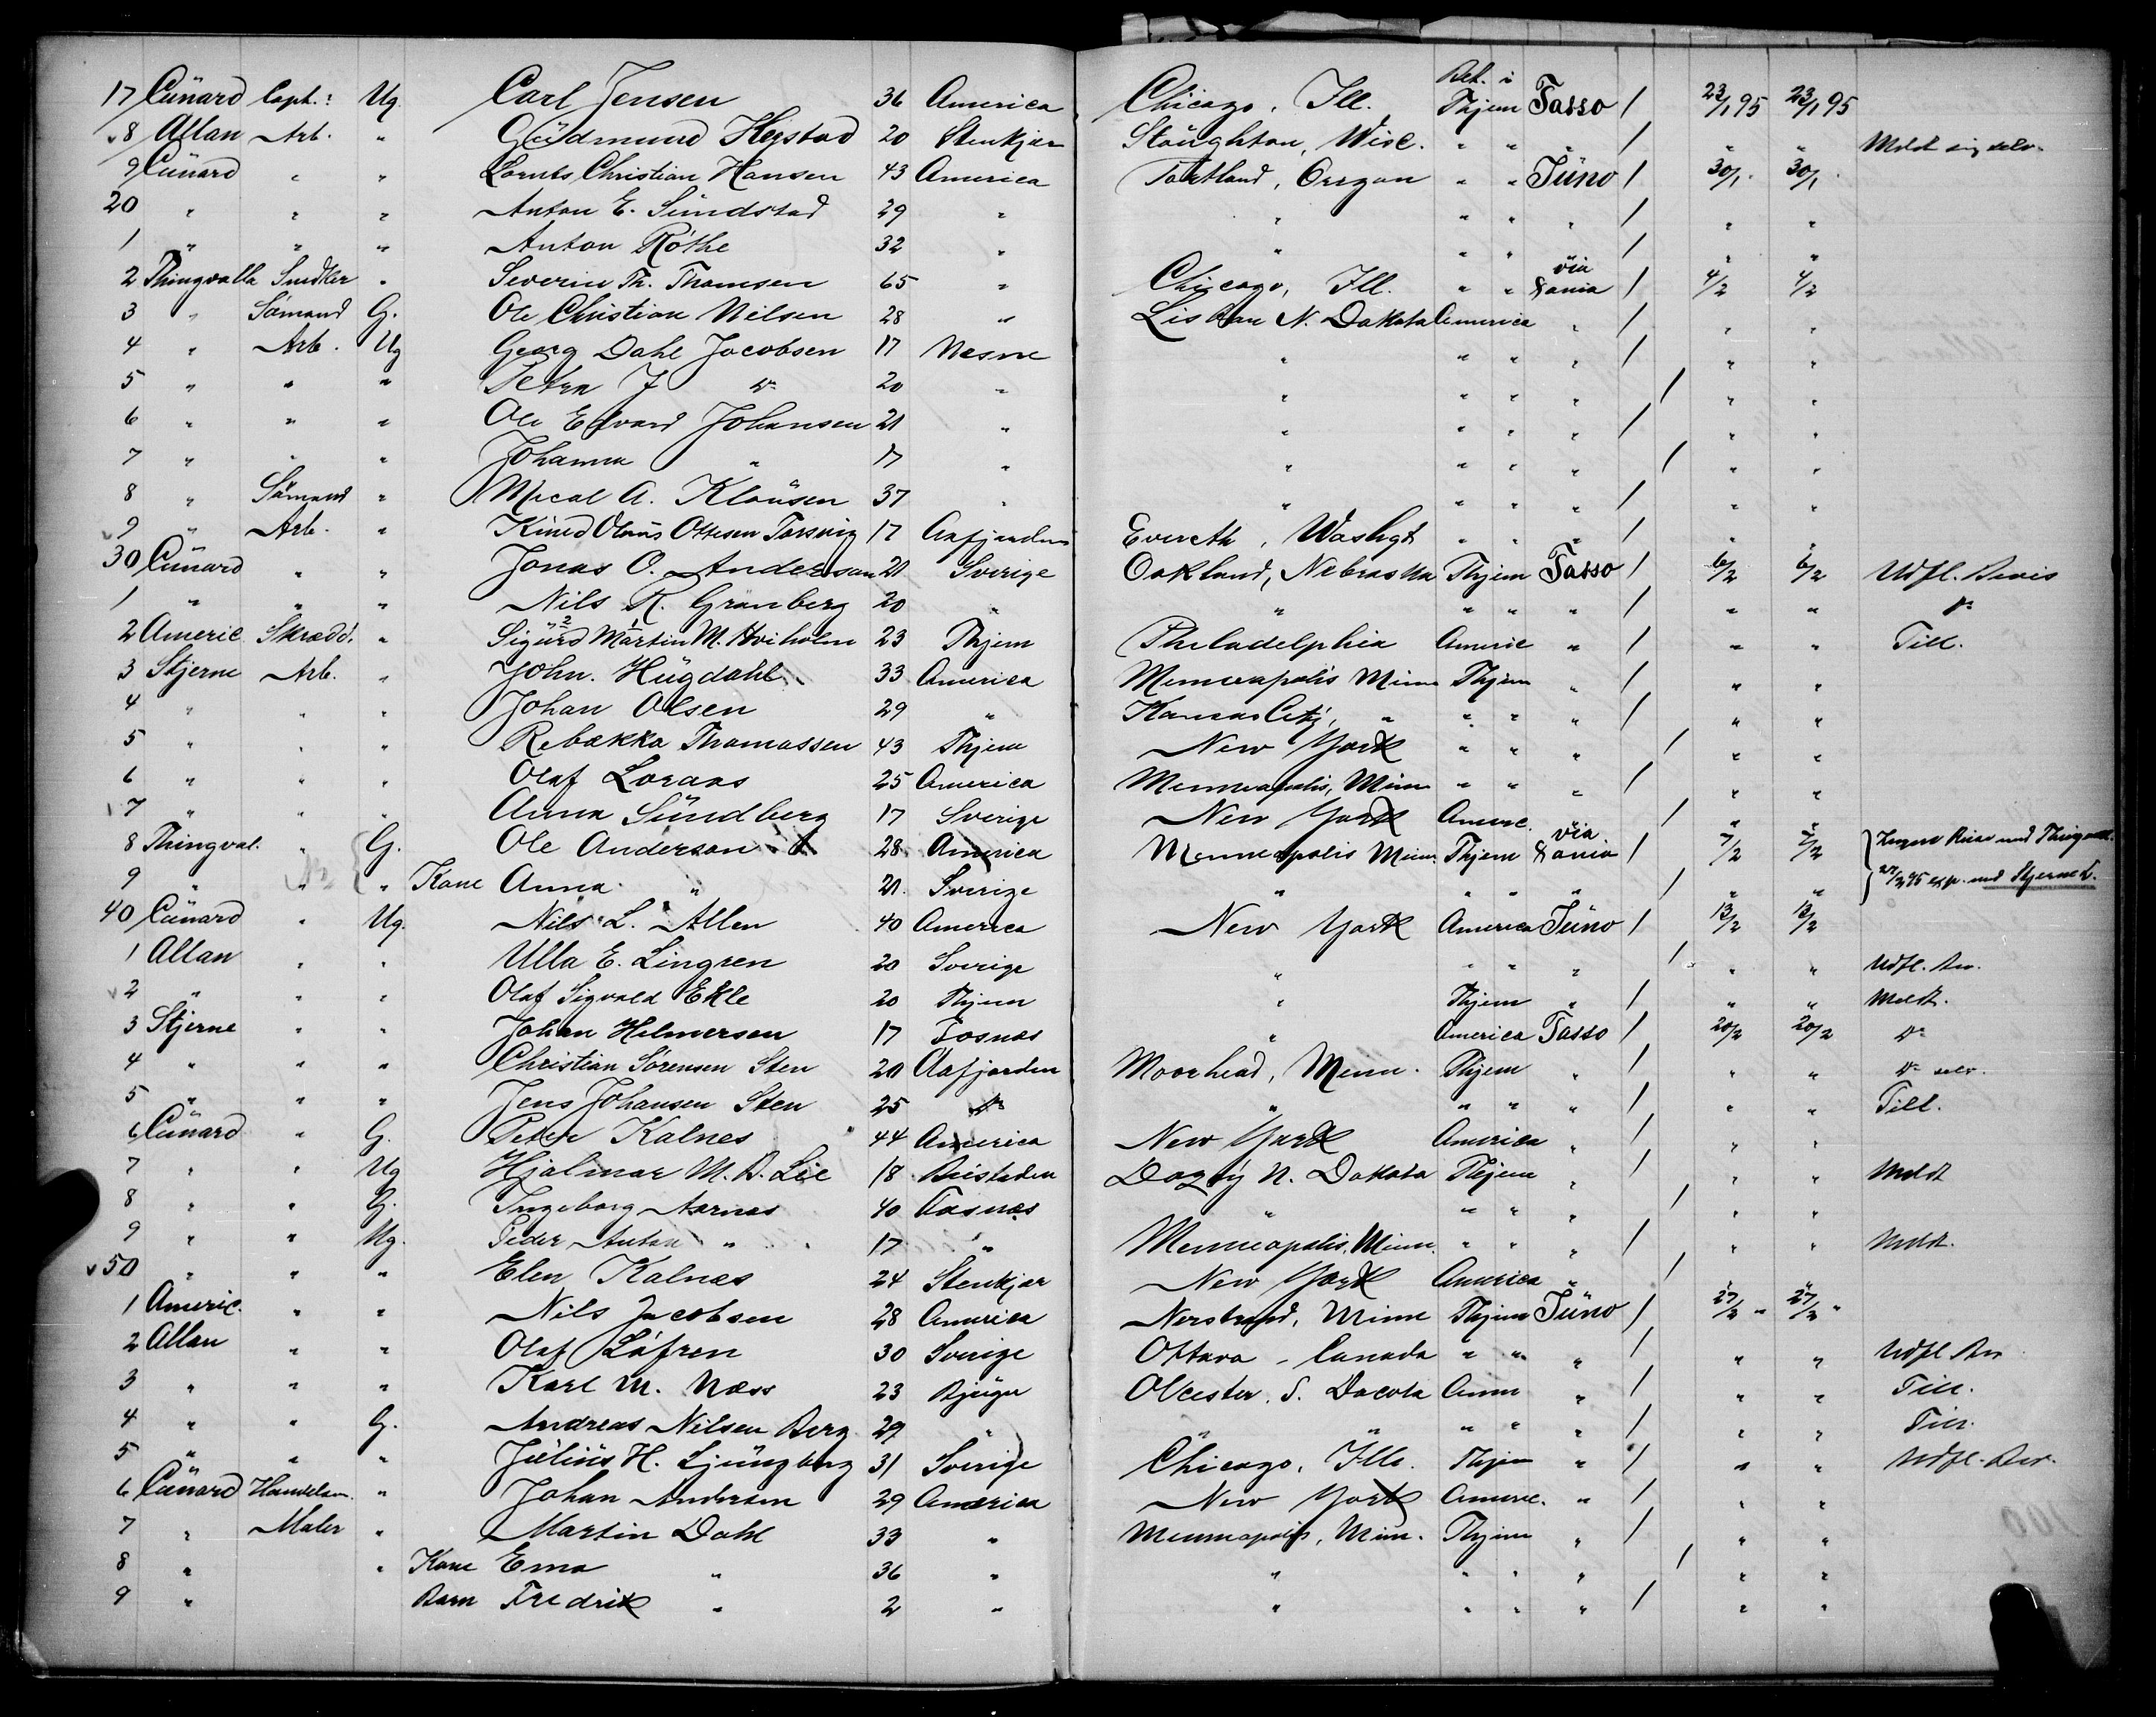 Bet. i
17 Cünard Capt.: Ug. Carl Jensen 36 America Chicago, Ill. Thjem Tasso / 23/1 95 23/1 95
8 Allan Arb. " Güdmund Hegstad 20 Stenkjær Stoüghton, Wisc. " " " / " " Meldt sig selv.
9 Cünard " " Lornts Christian Hansen 43 America Portland, Oregon " " Jüno / 30/1 30/1
20 " " " Anton E. Sündstad 29 " " " " " / " "
1 " " " Anton Róthe 32 " " " " " / " "
2 Thingvalla Snedker " Severin Th. Thomsen 65 " Chicago, Ill. " " via Xania / 4/2 4/2
3 " Sømand G. Ole Christian Nilsen 28 " Lisbon N. Dakota America " / " "
4 " Arb. Ug Georg Dahl Jacobsen 17 Nesne " " " " / " "
5 " " " Petra J do 20 " " " " " / " "
6 " " " Ole Edvard Johansen 21 " " " " " / " "
7 " " " Johanna " 17 " " " " " / " "
8 " Sømand " Mical A. Klaüsen 37 " " " " " / " "
9 " Arb. " Knud Olaüs Ottesen Tarsvig 17 Aafjorden Evereth, Washgt " " " / " "
30 Cünard " " Jonas O. Anderson 21 Sverige Oakland, Nebraska Thjem Tasso / 6/2 6/2 Udfl. Bevis
1 " " " Nils R. Granberg 20 " " " " " / " " do
2 Americ Skrædd. " Sigürd Martin M. Hviholm 23 Thjem Philadelphia Americ " / " " Till.
3 Stjerne Arb. " John. Hügdahl 33 America Minneapolis Minn Thjem " / " "
4 " " " Johan Olsen 29 " Kansas City, " " " " / " "
5 " " " Rebekka Thomassen 43 Thjem New York " " " / " "
6 " " " Olaf Loraas 25 America Minneapolis, Minn " " " / " "
7 " " " Anna Sündberg 17 Sverige New York Americ. " / " "
8 Thingval. " G. Ole Anderson 28 America Minneapolis Minn. Thjem via Xania / 7/2 7/2
9 " " " Kone Anna " 21 Sverige " " " " / " " 27/2 95 exp. med Stjerne L.
40 Cünard " Ug. Nils L. Allen 40 America New York America Jüno / 13/2 13/2
1 Allan " " Ulla E. Lingren 20 Sverige " " " " / " " Udfl. Bev.
2 " " " Olaf Sigvald Ekle 20 Thjem " Thjem " / " " Meldt.
3 Stjerne " " Johan Helmersen 17 Fosnæs " America Tasso / 20/2 20/2 do
4 " " " Christian Sørensen Sten 20 Aafjorden Moorhead, Minn. Thjem " / " " do selv.
5 " " " Jens Johansen Sten 25 do " " " " / " " Till.
6 Cünard " G. Peter Kalnes 44 America New York America " / " "
7 " " Ug Hjalmar M. D. Lie 18 Beistaden Dazey N. Dakota Thjem " / " " Meldt
8 " " G. Ingeborg Aarnæs 40 Fosnæs " " " " / " "
9 " " Ug. Peder Anton " 17 " Minneapolis, Minn. " " " / " " Meldt.
50 " " " Elen Kalnæs 24 Stenkjær New York America " /
1 Americ. " " Nils Jacobsen 28 America Nerstrand, Minne Thjem Jüno / 27/2 " 27/2 "
2 Allan " " Olaf Löfren 30 Sverige Ottava - Canada " " " / " " Udfl Bev
3 " " " Karl M. Næss 23 Bjügn Olcester, S. Dacota Amer " / " " Till.
4 " " G. Andreas Nilsen Berg 29 " " " " " / " " Till.
5 " " " Jülius H. Ljüngberg 31 Sverige Chicago, Ills. Thjem " / " " Udfl. Bev.
6 Cünard Handelsm. " Johan Andersen 29 America New York Americ. " / " "
7 " Maler " Martin Dahl 33 " Minneapolis, Minn. Thjem " / " "
8 " " Kone Ema " 36 " " " " " / " "
9 " Barn Fredrik " 2 " " " " " / " "